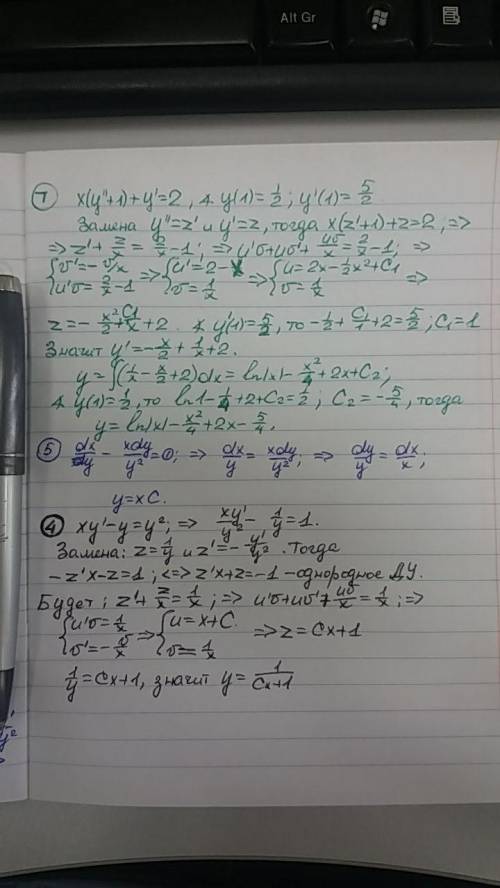 Alt Gr
7 x(y''+1)+y'=2, д. y(1)=1/2; y'(1)=5/2
Замена y''=z' и y'=z, тогда x(z'+1)+z=2; =>
=> z'+z/x=2/x-1; => u'v+uv'+uv/x=2/x-1; =>
{v'=-v/x => {u'=2-x => {u=2x-1/2x²+C1 =>
{u'v=2/x-1 {v=1/x {v=1/x
z=-x/2+C1/x+2. д. y'(1)=5/2, то -1/2+C1/1+2=5/2; C1=1
Значит y'=-x/2+1/x+2.
y=∫(1/x-x/2+2)dx=ln|x|-x²/4+2x+C2;
д. y(1)=1/2, то ln1-1/4+2+C2=1/2; C2=-5/4, тогда
y=ln|x|-x²/4+2x-5/4.
5 dx/y-xdy/y²=0; => dx/y=xdy/y²; => dy/y=dx/x;
y=xC.
4 xy'-y=y²; => xy'/y²-1/y=1.
Замена: z=1/y и z'=-y'/y². Тогда
-z'x-z=1; <=> z'x+z=-1 - однородное ДУ.
Будет: z'+z/x=1/x; => u'v+uv'+uv/x=1/x; =>
{u'v=1/x => {u=x+C. => z=Cx+1
{v'=-v/x {v=1/x
1/y=Cx+1, значит y=1/(Cx+1)